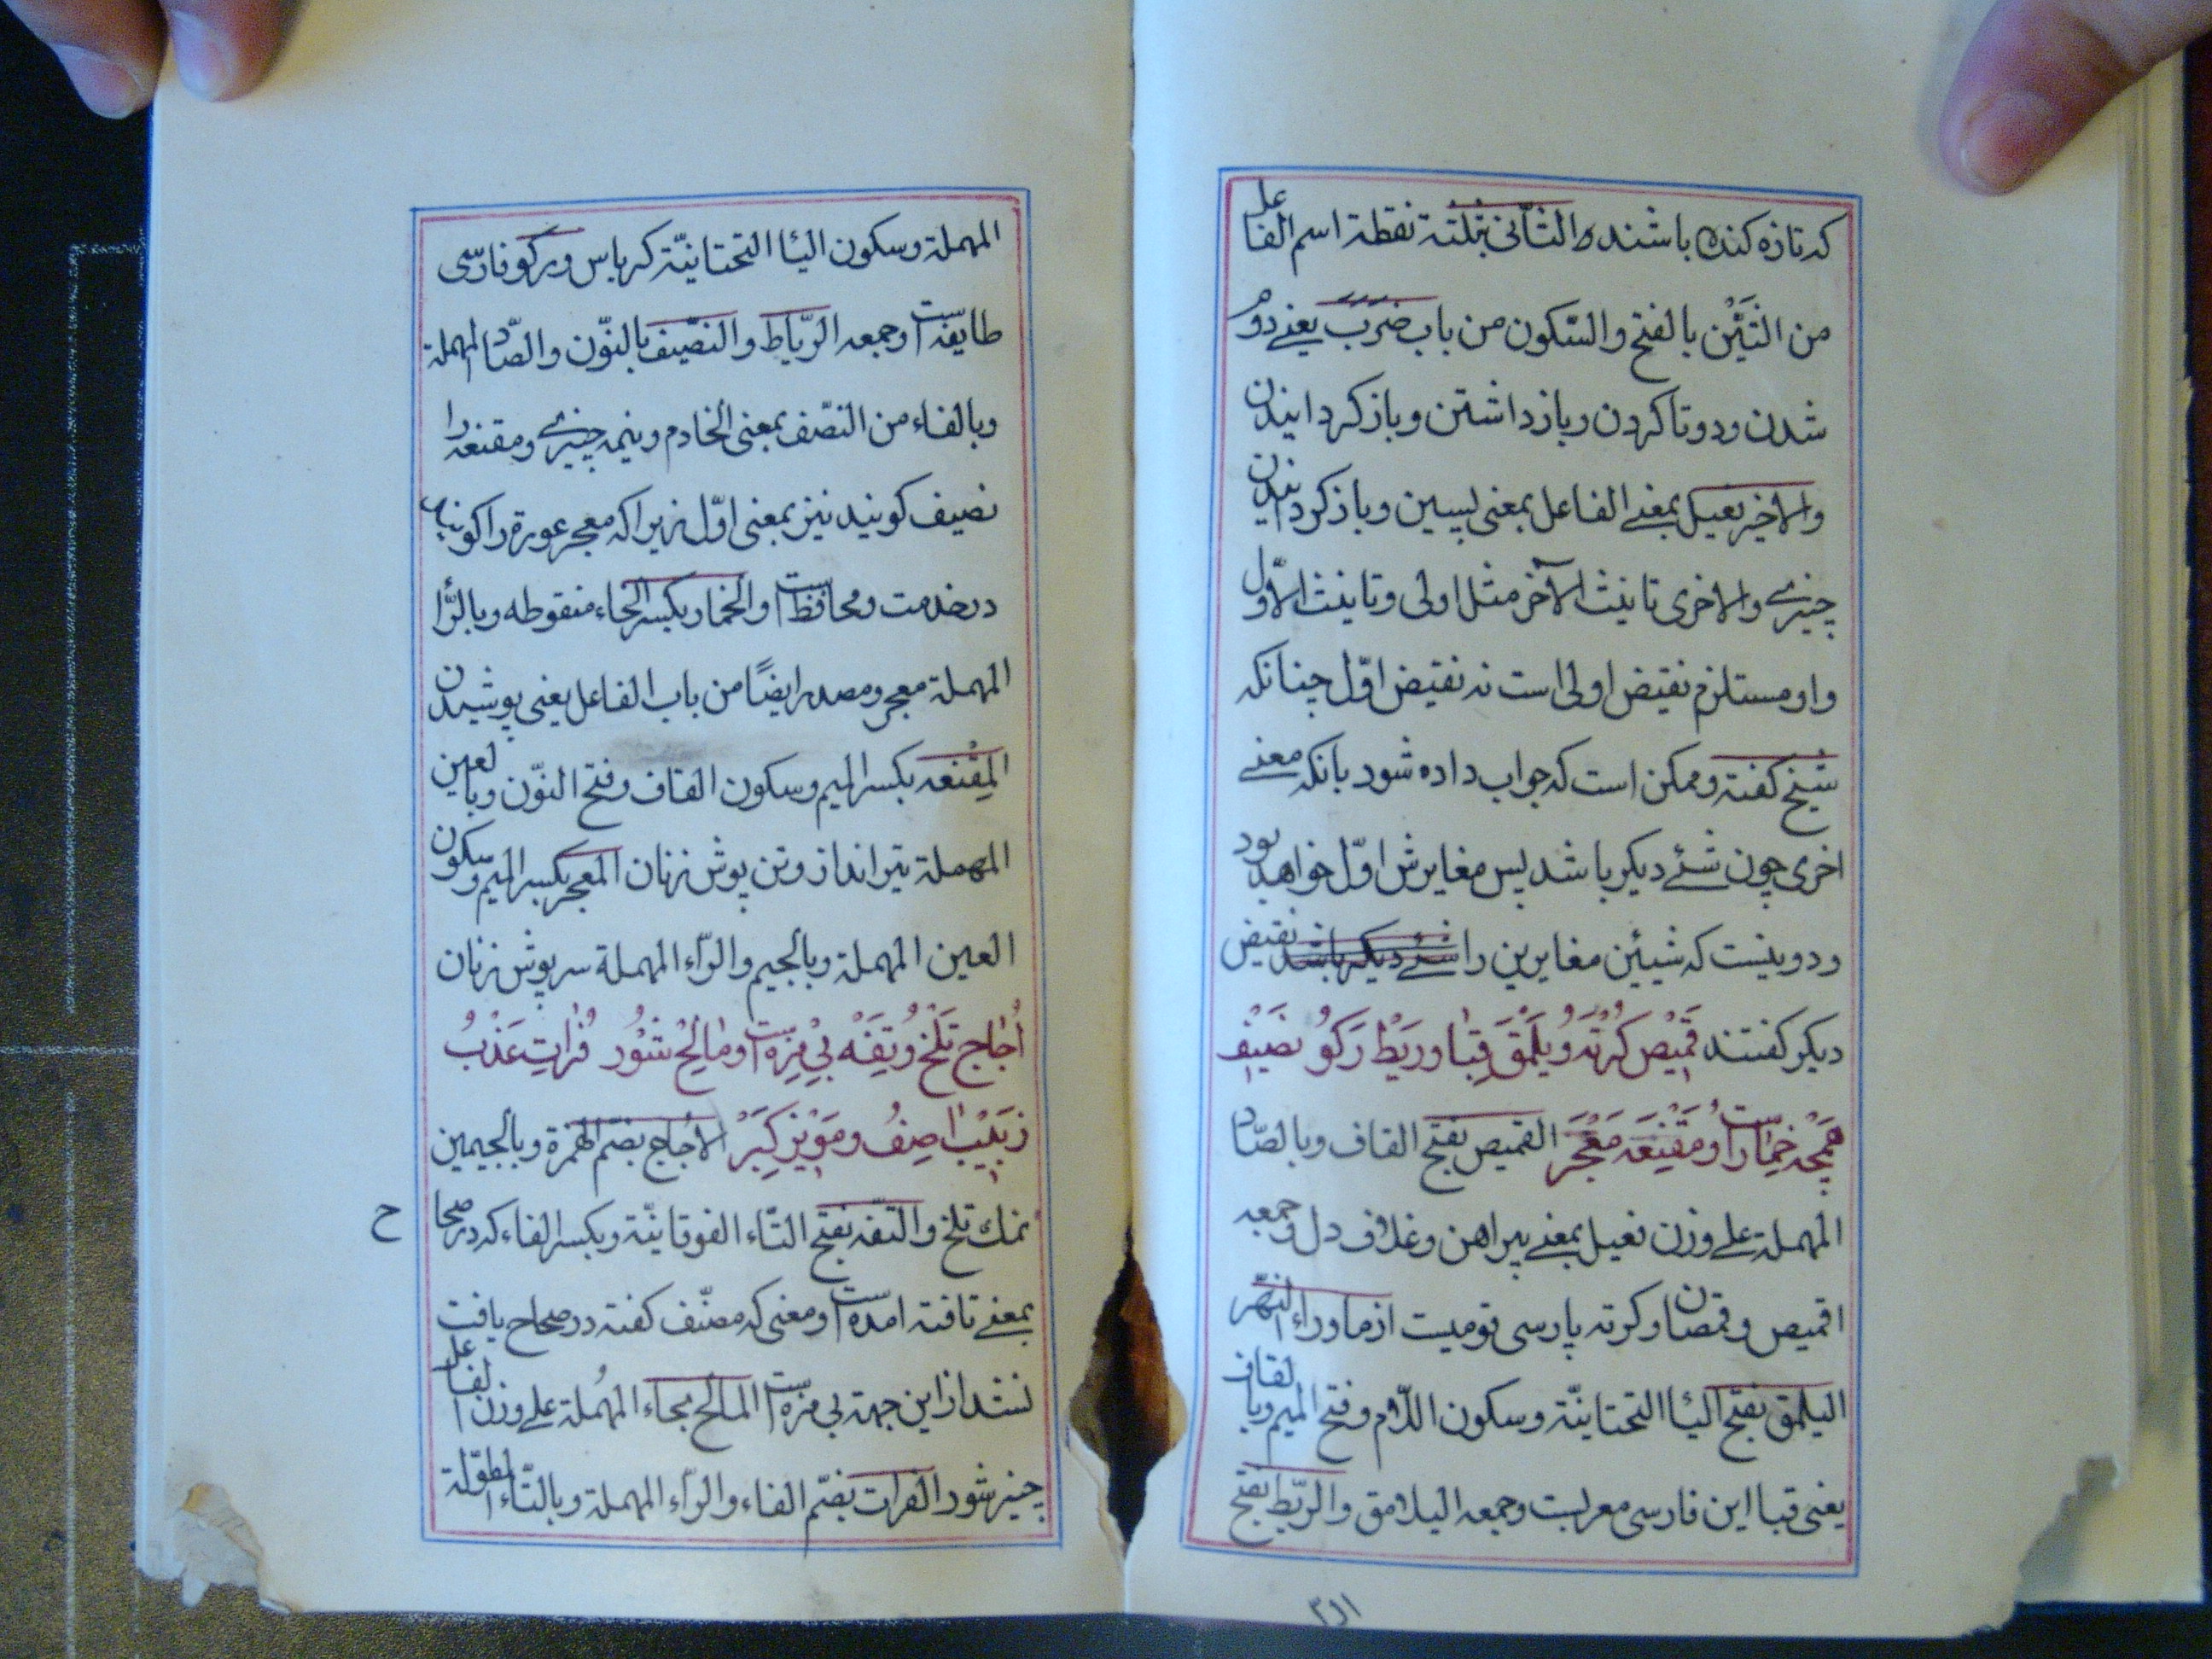 که تازه کننده باشنده والثانی بثلثة نقطة اسم الفاعل
من الثَنْیْن بالفتح والسّکون من باب ضَرَبَ یعنے دوم
شدن ودوتا کردن وباز داشتن وباز کردانیدن
والاخیر فعیل بمعنے الفاعل بمعنی پسین وباز کردانیدن
چیزے والاخری تانیث الآخر مثل اولی وتانیث الاوّل
واو مستلزم نقیض اولی است نه نقیض اوّل چنانکه
شیخ کفته وممکن است که جواب داده شود بانکه معنے
اخری چون شئے دیکر باشد پس مغایرش اوّل خواهد بود
ودو نیست که شیئین مغایرین را شئے دیکر باشد نقیض
دیکر کفتند قَمیْص کُرتَه وُ یَلْمَقَ قِبٰا ورَیْطْ رَکوُ نَصیْف
هَمچُه خِمٰار است وُ مِقْنَعَه مَعْجَرْ القمیص بفتح القاف وبالصّاد
المهملة علے وزن فعیل بمعنے پیراهن وغلاف دل وجمعه
اقمیص وقمصان وکرته پارسی قومیست از ماوراء النهّر
الیلمق بفتح الیٔا التحتانیّة وسکون اللّام وفتح المیم وبالقاف
یعنی قبا این فارسی معربست وجمعه الیلامق والرّیط بفتح
المهملة وسکون الیٔا التحتانیّة کرباس ورکو فارسی
طایفه است وجمعه الرّیاط والنصّیف بالنوّن والصّاد المهملة
وبالفاء من النصّف بمعنی الخادم ونیمه چیزے ومقنعه را
نصیف کویند نیز بمعنی اوّل زیرا که معجر عورة را کویند
درخدمت ومحافظ است والخمار بکسر الخاء منقوطه وبالرّأ
المهملة معجر ومصدر ایضًا من باب الفاعل یعنی پوشیدن
المِقْنعه بکسر المیم وسکون القاف وفتح النوّن وبالعین
المهملة تیر انداز وتن پوش زنان المعجر بکسر المیم وسکون
العین المهملة وبالجیم والرّاء المهملة سرپوش زنان
اُجٰاج تَلْخ وُ تَفِهْ بیْ مزه است ومٰالِحْ شُوْر فُرٰات عَذْبُ
زَبیْب اصِفُ ومَوْیز کِبَرْ الاُجاج بضمّ الهمزة وبالجیمین
نمك تلخ والتفه بفتح التّاء الفوقانیّة وبکسر الفاء که در صحاح
ح
بمعنے تافته امده است ومعنی که مصنّف کفته در صحاح یافت
نشد از این جهة بی مزه است المالح بحاء المهُملة علے وزن الفاعل
چیز شور الفرات بضمّ الفاء والرّاء المهملة وبالتّاء المطوّلة